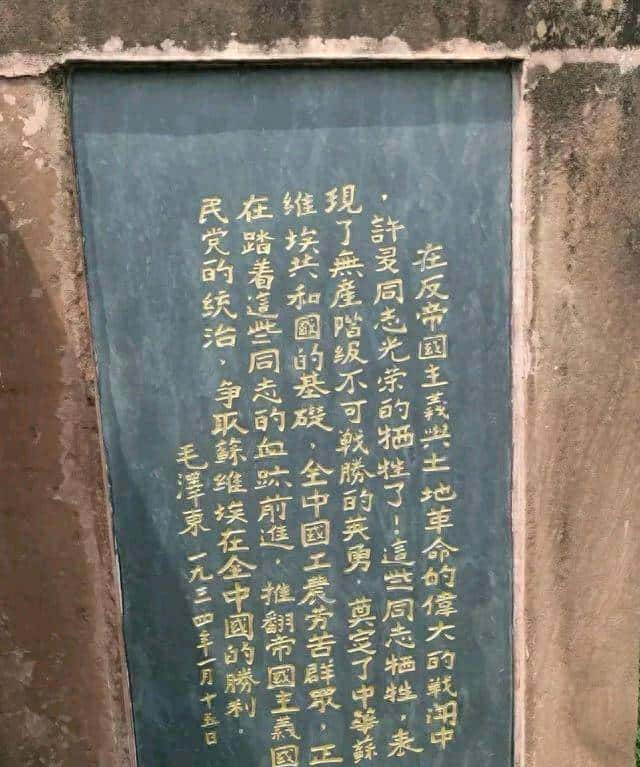 在反帝國主義與土地革命的偉大的戰鬪中
，許多同志光荣的牺牲了！這些同志牺牲，表
現了無產階級不可戰勝的英勇，奠定了中華蘇
維埃共和國的基礎，全中國工農劳苦群眾，正
在踏着這些同志的血跡前進，推翻帝國主義國
民党的統治，爭取蘇維埃在全中國的勝利。
毛澤東 一九三四年一月十五日